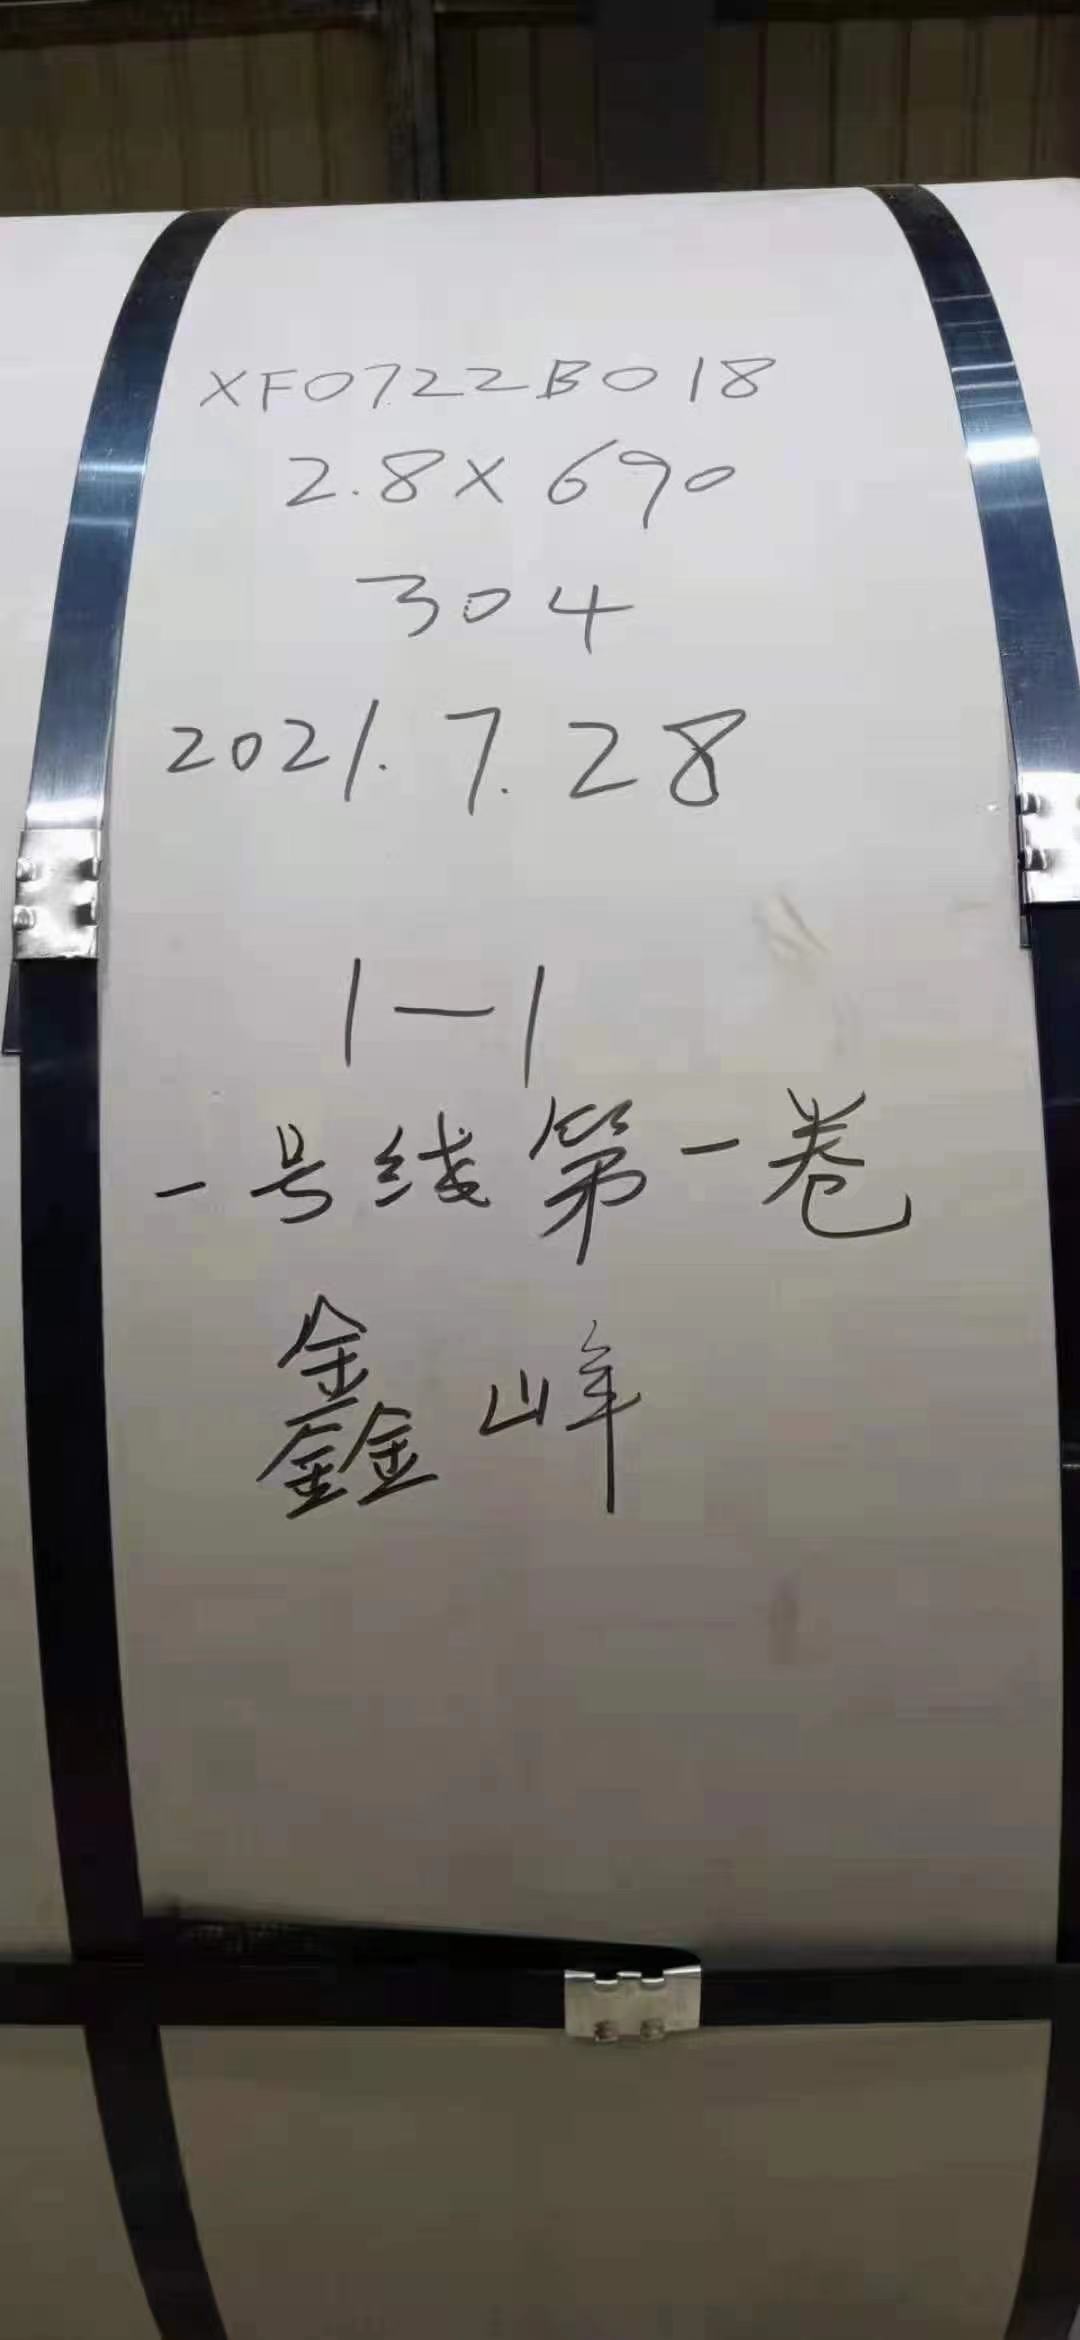 XF0722B018
2.8X690
304
2021.7.28
1-1
一号线第一卷
鑫峰